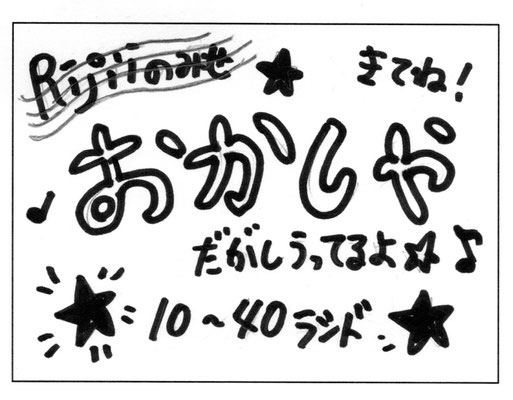 Rijiiのみせ
きてね!
おかしや
だがしうってるよ☆♪
10~40ランド